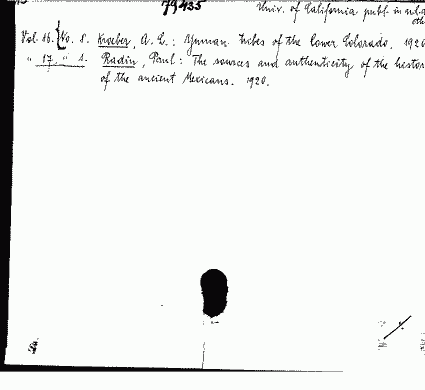 79435
Univ. of California publ. in
Vol. 16. No. 8. Kroeber, A. L.: Yuman tribes of the lower Colorado. 1920
" 17. " 1. Radin, Paul: The sources and authenticity of the histor
of the ancient Mexicans. 1920.